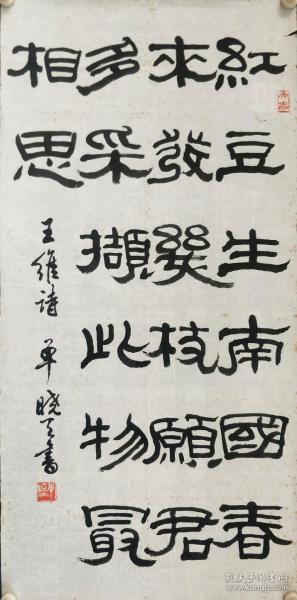 紅豆生南國春
來發幾枝願君
多采擷此物最
相思
王維詩 單曉天書